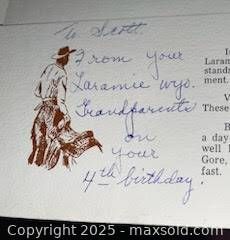 To Scott.
From your
Laramie Wyo.
Grandparents
on
your
4th birthday.
I
Laram
standa
ment.
V
These
B
a day
well l
Gore,
fast.
Copyright 2025 - maxsold.com